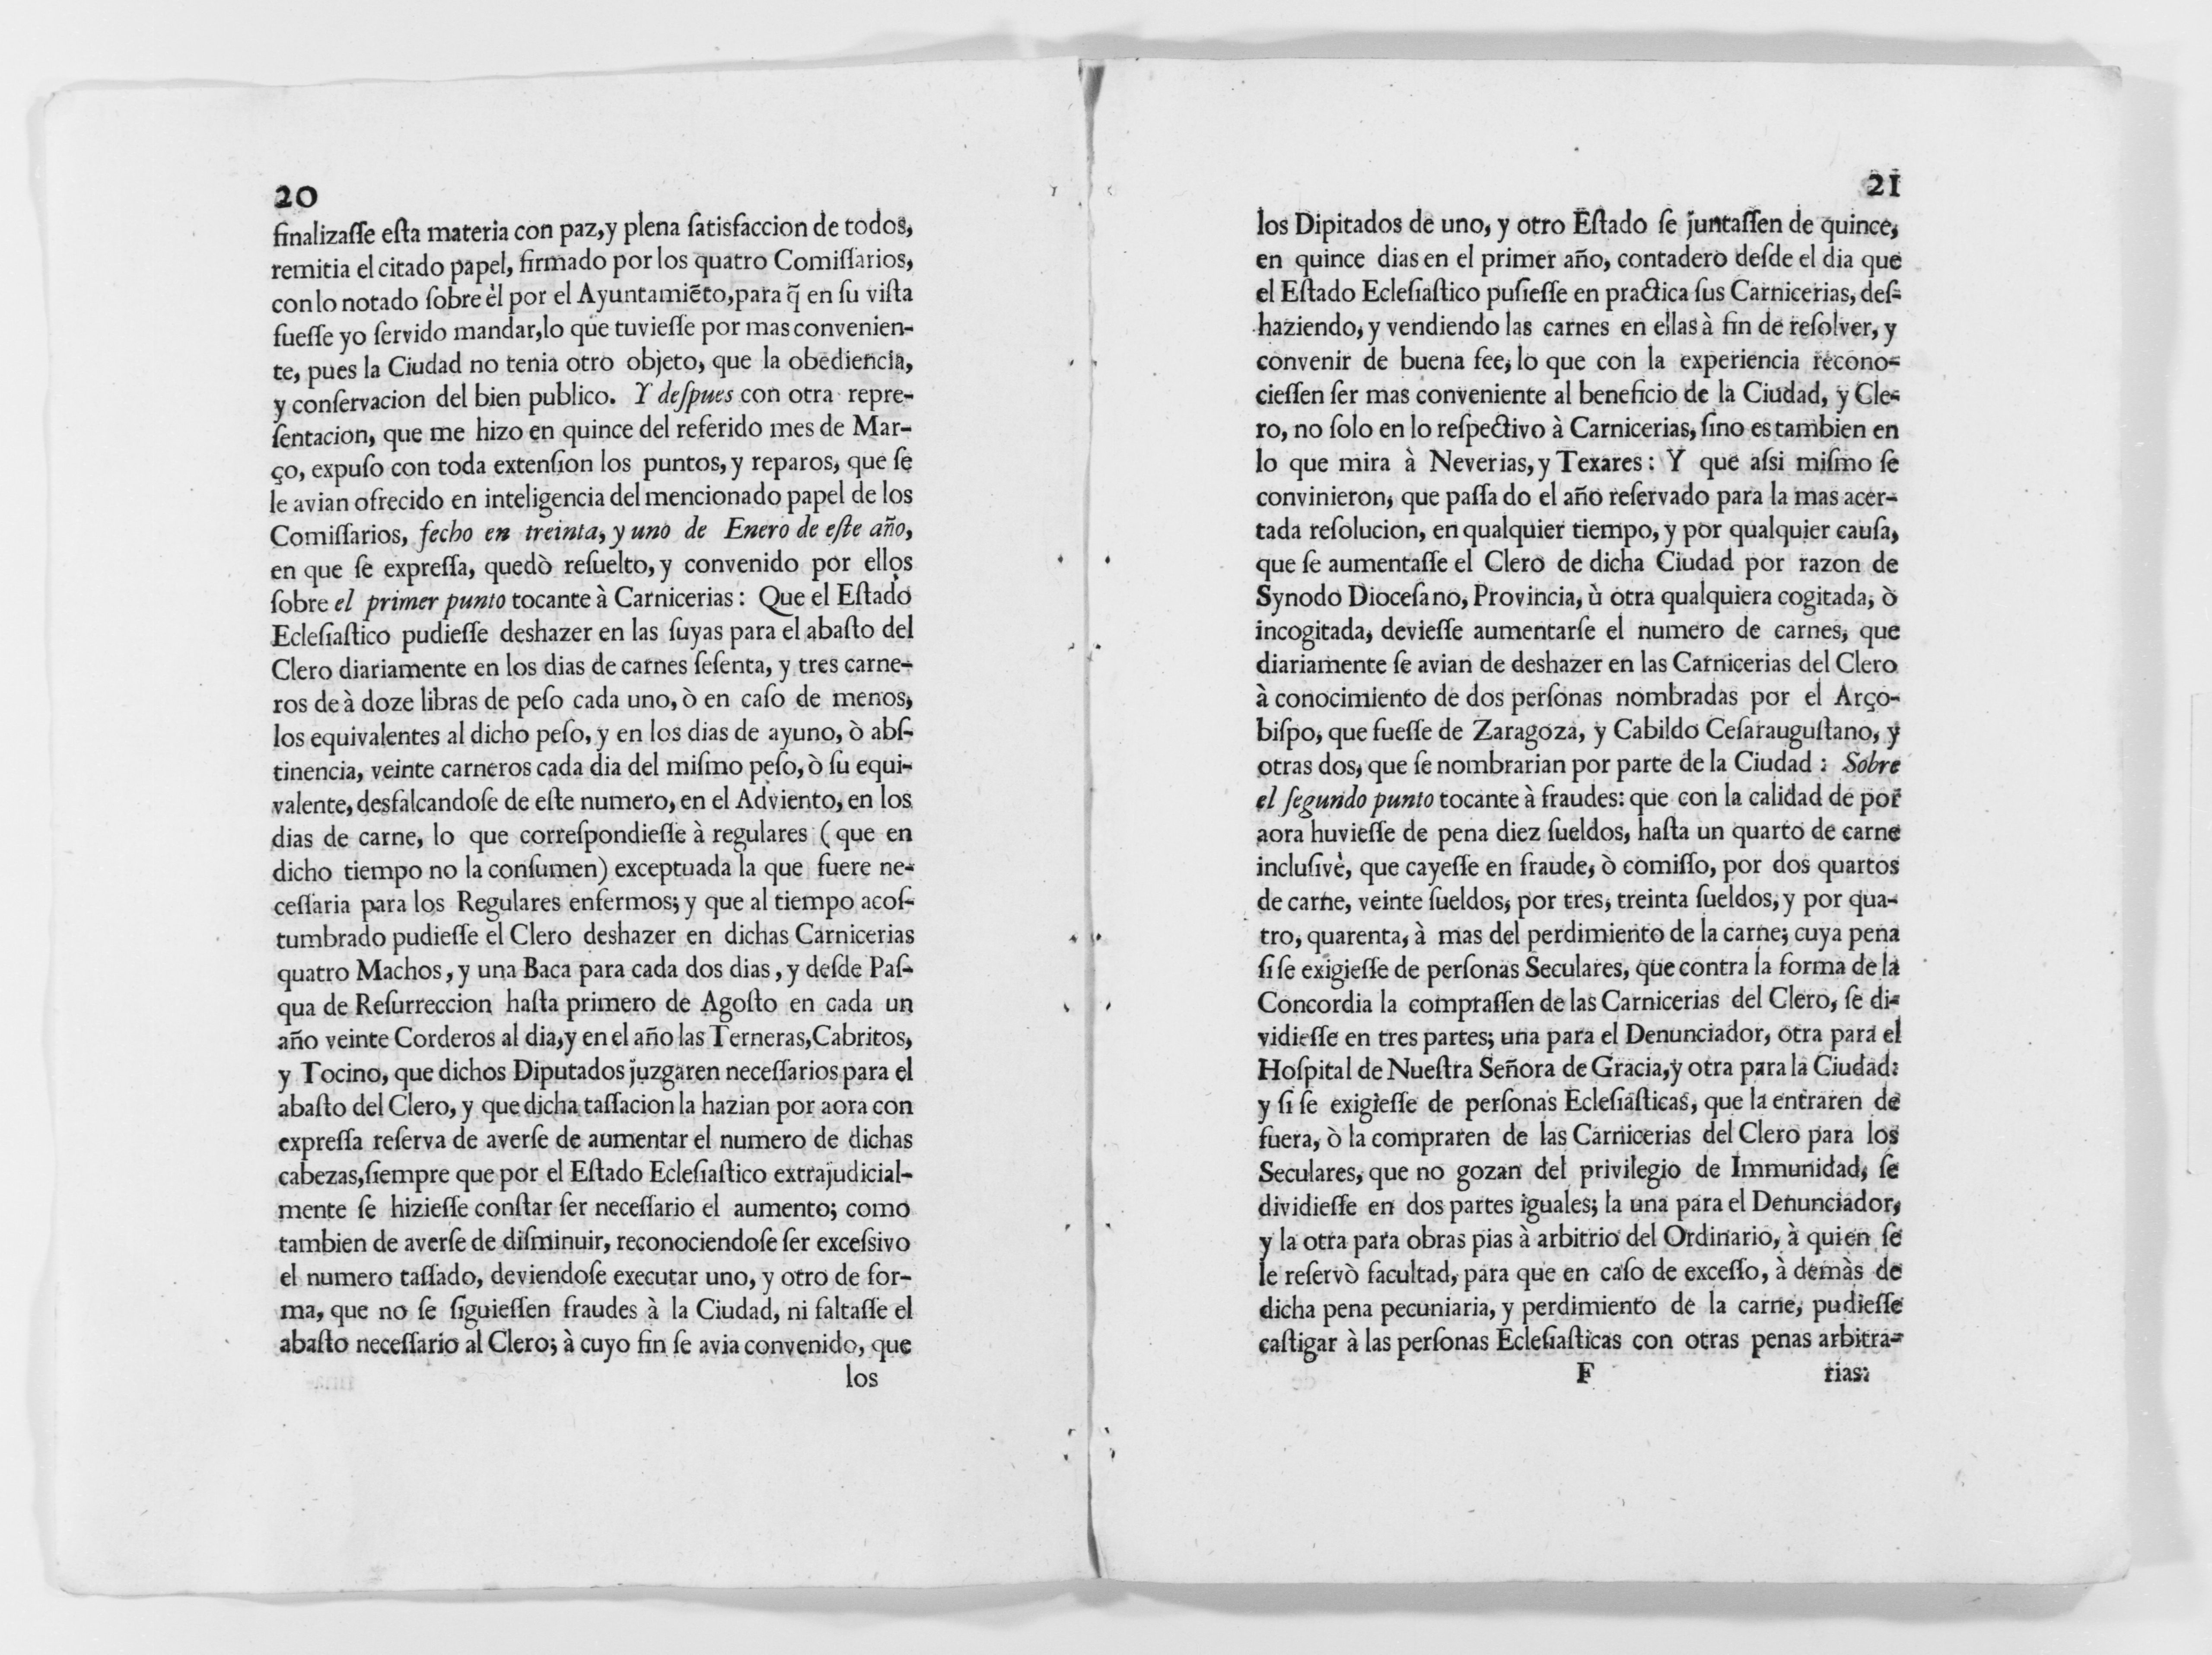 20
finalizaſſe eſta materia con paz,y plena ſatisfaccion de todos,
remitia el citado papel, firmado por los quatro Comiſſarios,
con lo notado ſobre èl por el Ayuntamiẽto,para q̃ en ſu viſta
fueſſe yo ſervido mandar,lo que tuvieſſe por mas convenien-
te, pues la Ciudad no tenia otro objeto, que la obediencia,
y conſervacion del bien publico. Y deſpues con otra repre-
ſentacion, que me hizo en quince del referido mes de Mar-
ço, expuſo con toda extenſion los puntos, y reparos, que ſe
le avian ofrecido en inteligencia del mencionado papel de los
Comiſſarios, fecho en treinta, y uno de Enero de eſte año,
en que ſe expreſſa, quedò reſuelto, y convenido por ellos
ſobre el primer punto tocante à Carnicerias: Que el Eſtado
Ecleſiaſtico pudieſſe deshazer en las ſuyas para el abaſto del
Clero diariamente en los dias de carnes ſeſenta, y tres carne-
ros de à doze libras de peſo cada uno, ò en caſo de menos,
los equivalentes al dicho peſo, y en los dias de ayuno, ò abſ-
tinencia, veinte carneros cada dia del miſmo peſo, ò ſu equi-
valente, desfalcandoſe de eſte numero, en el Adviento, en los
dias de carne, lo que correſpondieſſe à regulares (que en
dicho tiempo no la conſumen) exceptuada la que fuere ne-
ceſſaria para los Regulares enfermos; y que al tiempo acoſ-
tumbrado pudieſſe el Clero deshazer en dichas Carnicerias
quatro Machos, y una Baca para cada dos dias, y deſde Paſ-
qua de Reſurreccion haſta primero de Agoſto en cada un
año veinte Corderos al dia,y en el año las Terneras,Cabritos,
y Tocino, que dichos Diputados juzgaren neceſſarios para el
abaſto del Clero, y que dicha taſſacion la hazian por aora con
expreſſa reſerva de averſe de aumentar el numero de dichas
cabezas,ſiempre que por el Eſtado Ecleſiaſtico extrajudicial-
mente ſe hizieſſe conſtar ſer neceſſario el aumento; como
tambien de averſe de diſminuir, reconociendoſe ſer exceſsivo
el numero taſſado, deviendoſe executar uno, y otro de for-
ma, que no ſe ſiguieſſen fraudes à la Ciudad, ni faltaſſe el
abaſto neceſſario al Clero; à cuyo fin ſe avia convenido, que
los
21
los Dipitados de uno, y otro Eſtado ſe juntaſſen de quince,
en quince dias en el primer año, contadero deſde el dia que
el Eſtado Ecleſiaſtico puſieſſe en practica ſus Carnicerias, deſ-
haziendo, y vendiendo las carnes en ellas à fin de reſolver, y
convenir de buena fee, lo que con la experiencia recono-
cieſſen ſer mas conveniente al beneficio de la Ciudad, y Cle-
ro, no ſolo en lo reſpectivo à Carnicerias, ſino es tambien en
lo que mira à Neverias, y Texares: Y que aſsi miſmo ſe
convinieron, que paſſa do el año reſervado para la mas acer-
tada reſolucion, en qualquier tiempo, y por qualquier cauſa,
que ſe aumentaſſe el Clero de dicha Ciudad por razon de
Synodo Dioceſano, Provincia, ù otra qualquiera cogitada, ò
incogitada, devieſſe aumentarſe el numero de carnes, que
diariamente ſe avian de deshazer en las Carnicerias del Clero
à conocimiento de dos perſonas nombradas por el Arço-
biſpo, que fueſſe de Zaragoza, y Cabildo Ceſarauguſtano, y
otras dos, que ſe nombrarian por parte de la Ciudad: Sobre
el ſegundo punto tocante à fraudes: que con la calidad de por
aora huvieſſe de pena diez ſueldos, haſta un quarto de carne
incluſivè, que cayeſſe en fraude, ò comiſſo, por dos quartos
de carne, veinte ſueldos, por tres, treinta ſueldos, y por qua-
tro, quarenta, à mas del perdimiento de la carne; cuya pena
ſi ſe exigieſſe de perſonas Seculares, que contra la forma de la
Concordia la compraſſen de las Carnicerias del Clero, ſe di-
vidieſſe en tres partes; una para el Denunciador, otra para el
Hoſpital de Nueſtra Señora de Gracia,y otra para la Ciudad:
y ſi ſe exigieſſe de perſonas Ecleſiaſticas, que la entraren de
fuera, ò la compraren de las Carnicerias del Clero para los
Seculares, que no gozan del privilegio de Immunidad, ſe
dividieſſe en dos partes iguales; la una para el Denunciador,
y la otra para obras pias à arbitrio del Ordinario, à quien ſe
le reſervò facultad, para que en caſo de exceſſo, à demàs de
dicha pena pecuniaria, y perdimiento de la carne, pudieſſe
caſtigar à las perſonas Ecleſiaſticas con otras penas arbitra-
F rias: